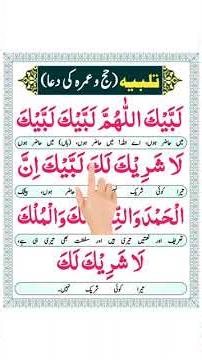 تلبیہ (حج و عمرہ کی دعا)
لَبَّيْكَ اللّٰهُمَّ لَبَّيْكَ لَبَّيْكَ
میں حاضر ہوں، اے اللہ! میں حاضر ہوں، (ہاں) میں حاضر ہوں
لَا شَرِيْكَ لَكَ لَبَّيْكَ اِنَّ
تیرا کوئی شریک نہیں، حاضر ہوں، بیشک
الْحَمْدَ وَالنِّ وَالْمُلْكَ
تعریف اور نعمتیں تیری ہیں اور سلطنت بھی تیری ہی ہے،
لَا شَرِيْكَ لَكَ
تیرا کوئی شریک نہیں۔